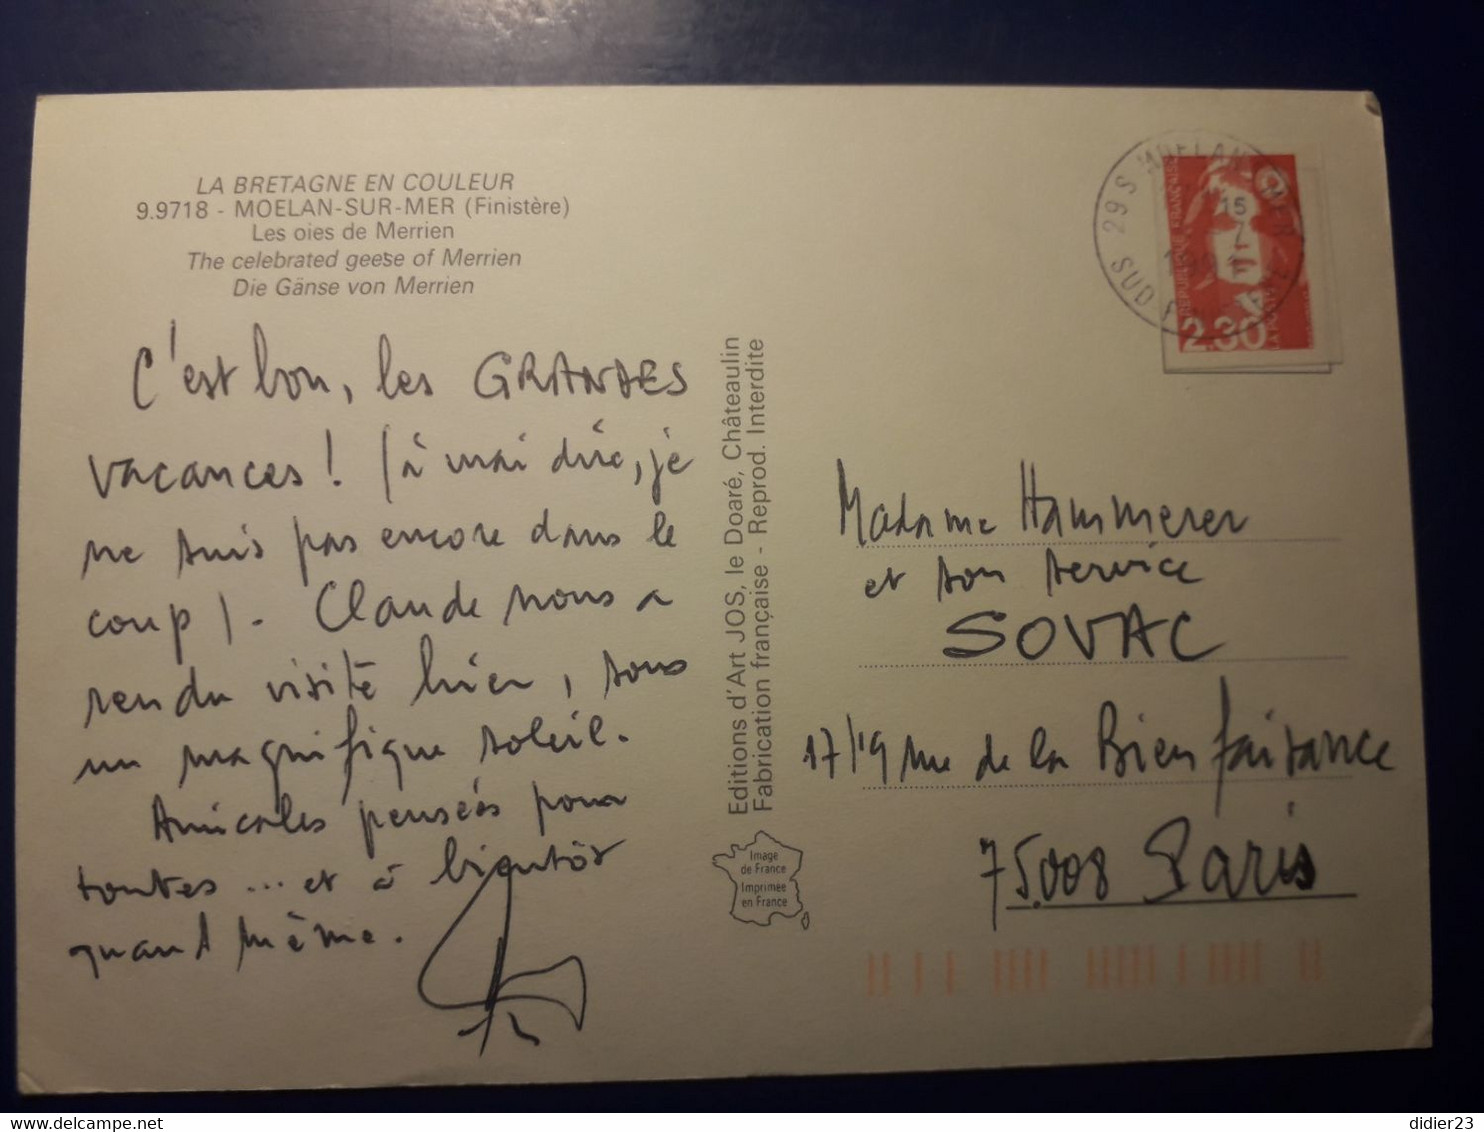 LA BRETAGNE EN COULEUR
9.9718 - MOELAN-SUR-MER (Finistère)
Les oies de Merrien
The celebrated geese of Merrien
Die Gänse von Merrien
C'est bon, les GRANDES
vacances ! (à vrai dire, je
ne suis pas encore dans le
coup). Claude nous a
rendu visite hier, sous
un magnifique soleil.
Amicales pensées pour
toutes ... et à bientôt
quand même.
Editions d'Art JOS, le Doaré, Châteaulin
Fabrication française - Reprod. Interdite
Image
de France
Imprimée
en France
29S MOELAN MER
15
7
SUD
REPUBLIQUE FRANÇAISE
2.30
LA POSTE
Madame Hammerer
et son service
SOVAC
17/19 rue de la Bienfaisance
75008 Paris
didier23